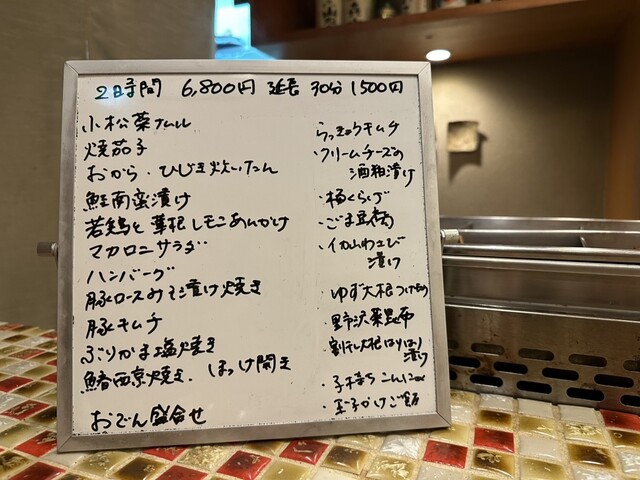 2時間 6,800円 延長 30分 1500円
小松菜ナムル
焼茄子
おから・ひじき炊いたん
鮭南蛮漬け
若鶏と 根 レモンあんかけ
マカロニサラダ
ハンバーグ
豚ロースみそ漬け焼き
豚キムチ
ぶりかま塩焼き
鰆西京焼き・ほっけ開き
おでん盛合せ
らっきょうキムチ
・クリームチーズの
酒粕漬け
・梅くらげ
・ごま豆腐
・イカ山わさび
漬け
・ゆず大根つけもの
・野沢菜昆布
・割干し大根はりはり
漬け
・子持ちこんにゃく
・玉子かけご飯